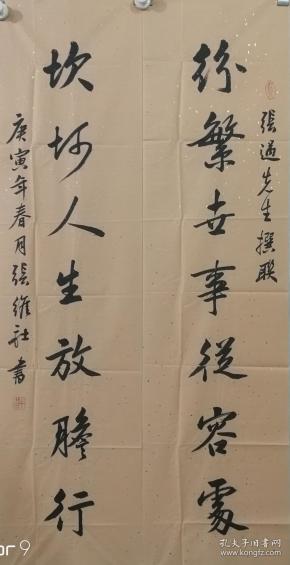 張過先生撰聯
紛繁世事從容處
坎坷人生放膽行
庚寅年春月張維社書
or 9
孔夫子旧书网